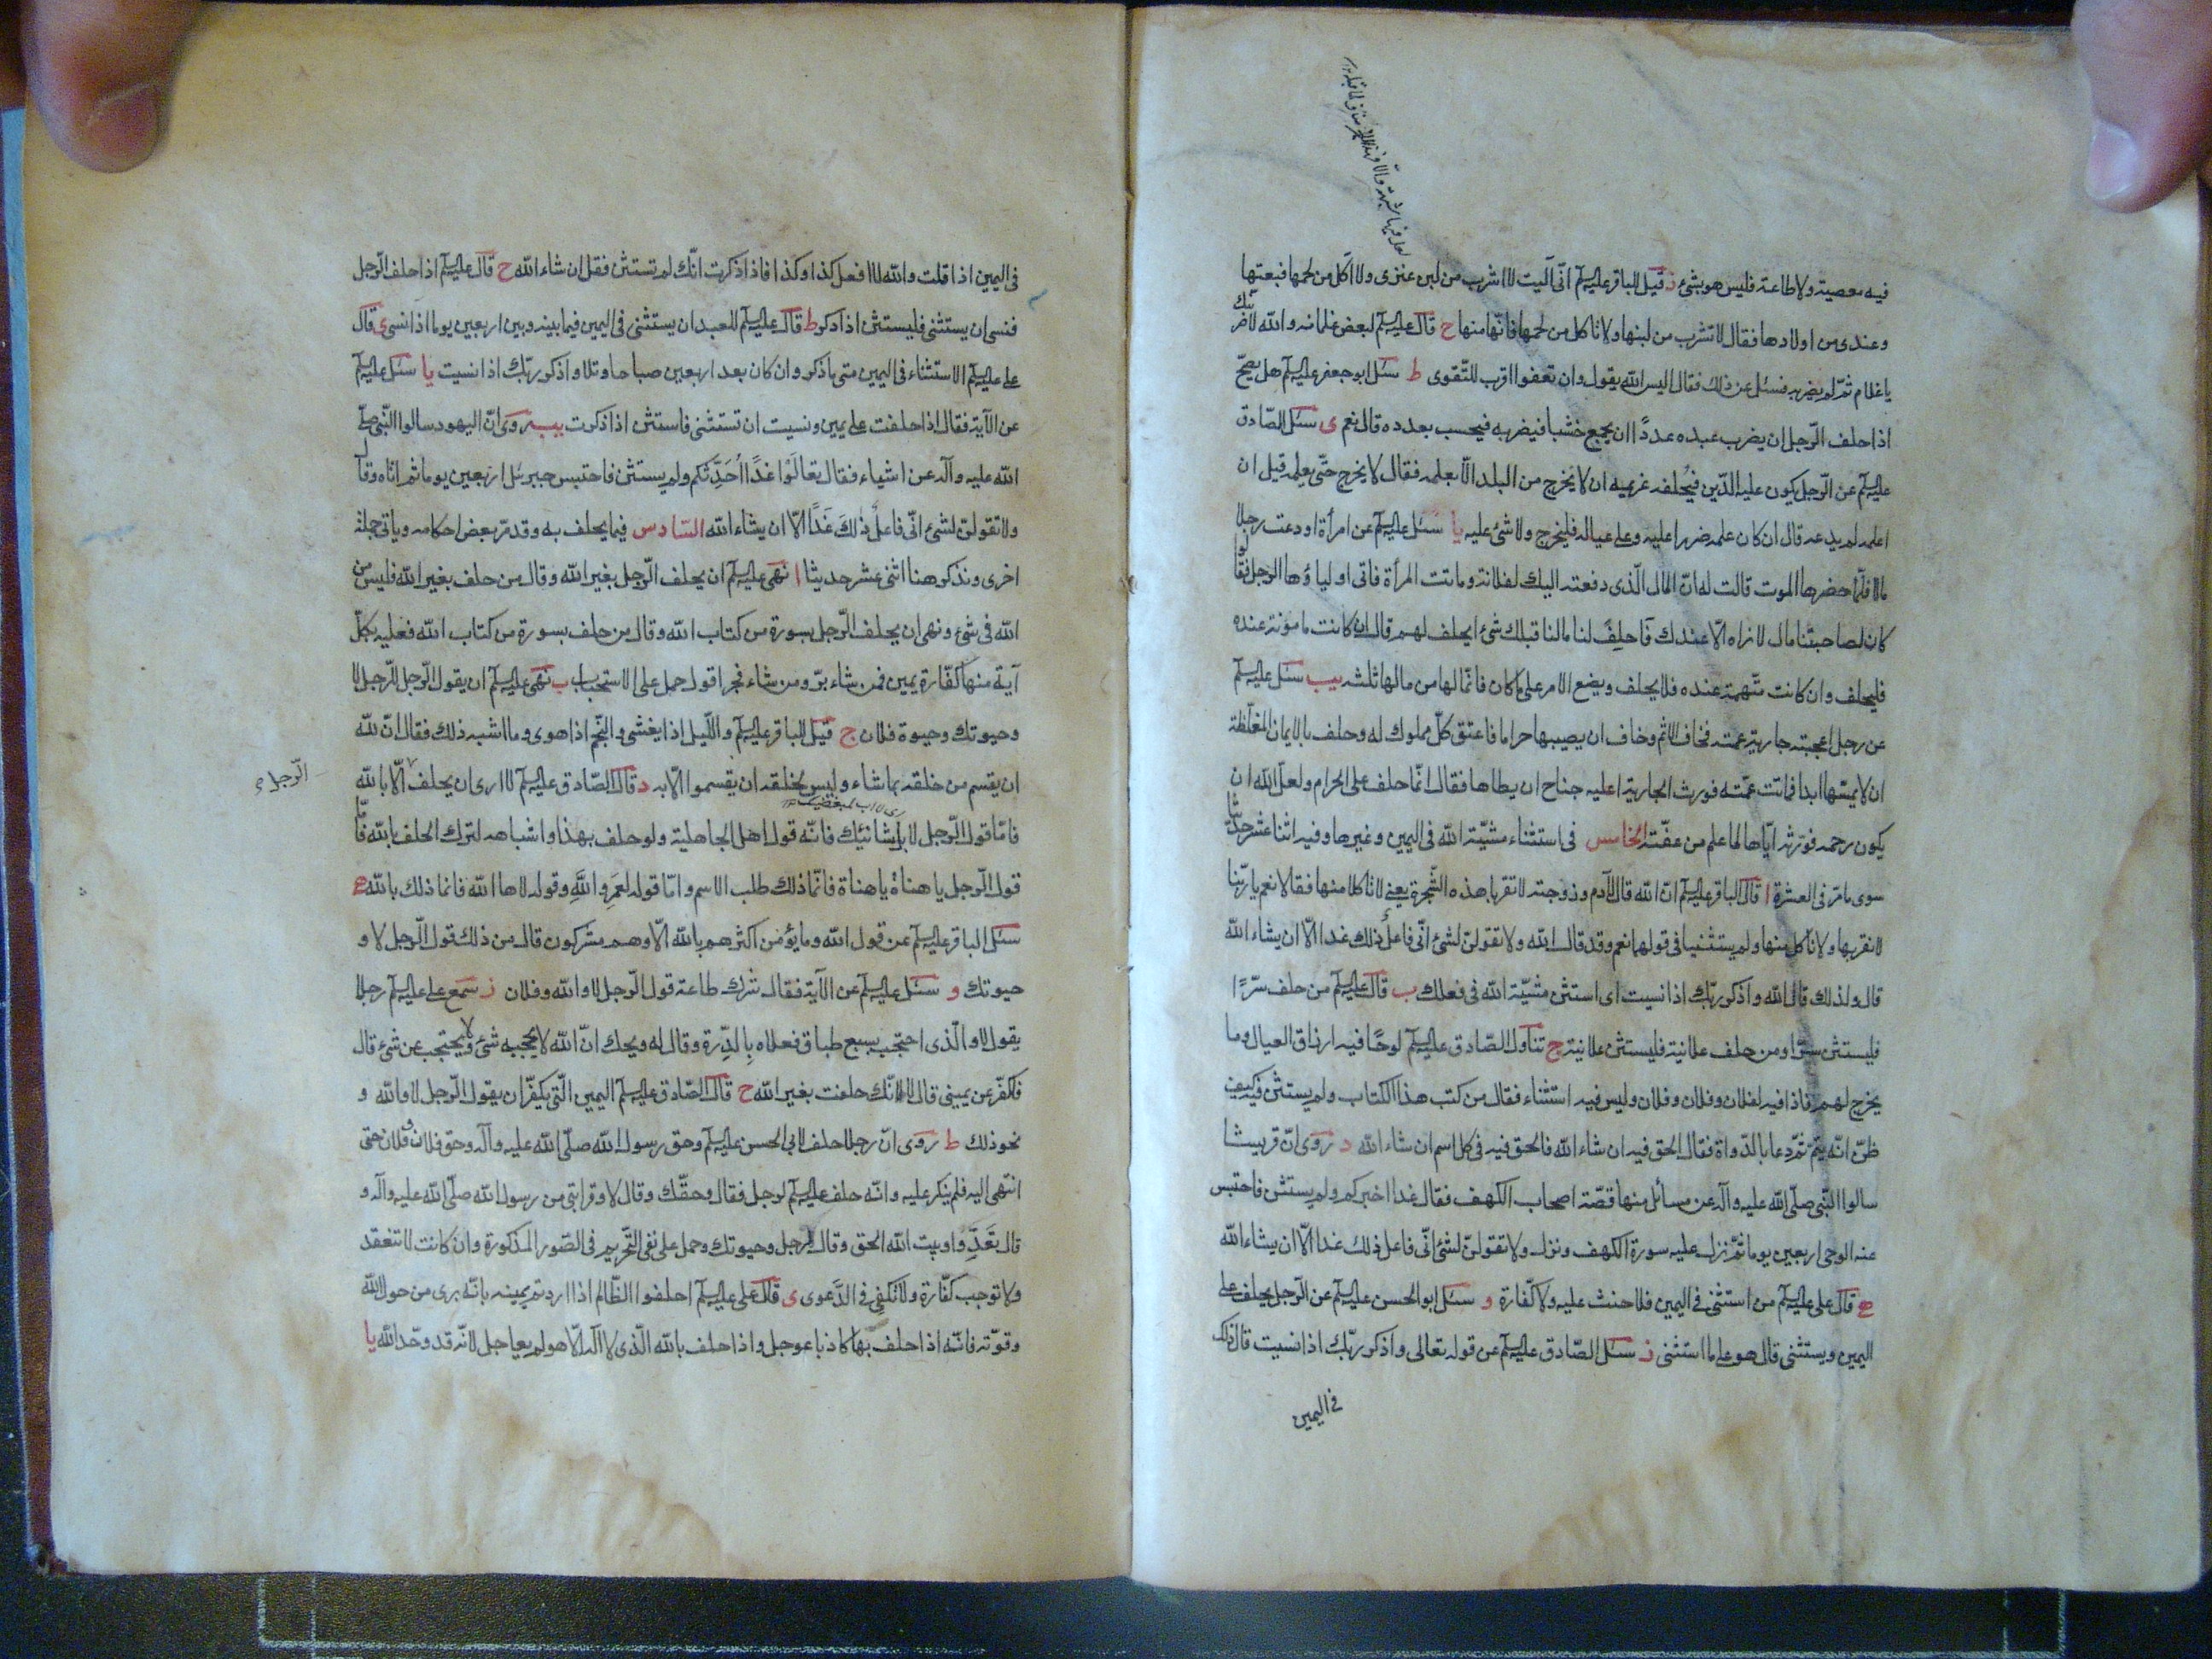 فيه معصية ولا طاعة فليس هو بشئ ز قيل للباقر عليه السلم انّى آليت لا اشرب من لبن عنزى ولا اكل من لحمها فبعتها
وعندى من اولادها فقال لا تشرب من لبنها ولا تاكل من لحمها فانّها منها ح قال عليه السلم لبعض غلمانه والله لاضربنّك
يا غلام ثمّ لم يضربه فسئل عن ذلك فقال اليس الله يقول وان تعفوا اقرب للتّقوى ط سئل ابو جعفر عليه السلم هل يصحّ
اذا حلف الرّجل ان يضرب عبده عددًا ان يجمع خشبا فيضربه فيحسب بعدده قال نعم ى سئل الصّادق
عليه السلم عن الرّجل يكون عليه الدّين فيُحلفه غريمه ان لا يخرج من البلد الّا بعلمه فقال لا يخرج حتّى يعلمه قيل ان
اعلمه لم يدعه قال ان كان علمه ضررا عليه وعلى عياله فليخرج ولا شئ عليه يا سئل عليه السلم عن امرأة اودعت رجلا
مالا فلمّا حضرها الموت قالت له انّ المال الّذى دفعته اليك لفلانة وماتت المرأة فاتى اولياؤها الرجل فقالوا
كان لصاحبتنا مال لا نراه الّا عندك فَاحلِف لنا مالنا قبلك شئ ايحلف لهم قال ان كانت مامونة عنده
فليحلف وان كانت متّهمة عنده فلا يحلف ويضع الامر على ما كان فانّما لها من مالها ثلثه يب سئل عليه السلم
عن رجل اعجبته جارية عمّته فخاف الاثم وخاف ان يصيبها حراما فاعتق كلّ مملوك له وحلف بالايمان المغلّظة
ان لا يمسّها ابدا فماتت عمّته فورث الجارية اعليه جناح ان يطاها فقال انّما حلف على الحرام ولعلّ الله ان
يكون رحمه فورّثه ايّاها لما علم من عفّته الخامس فى استثناء مشيّة الله فى اليمين وغيرها وفيه اثنا عشر حديثًا
سوى ما مرّ فى العشرة ا قال الباقر عليه السلم انّ الله قال لآدم وزوجته لا تقربا هذه الشّجرة يعنى لا تاكلا منها فقالا نعم يا ربّنا
لا نقربها ولا نأكل منها ولم يستثنيا فى قولهما نعم وقد قال الله ولا تقولنّ لشئ انّى فاعلٌ ذلك غدا الّا ان يشاء الله
قال ولذلك قال الله واذكر ربّك اذا نسيت اى استثن مشيّة الله فى فعلك ب قال عليه السلم من حلف سرًّا
فليستثن سرّا ومن حلف علانية فليستثن علانية ج تناول الصّادق عليه السلم لوحًا فيه ارزاق العيال وما
يخرج لهم فاذا فيه لفلان وفلان وفلان وليس فيه استثناء فقال من كتب هذا الكتاب ولم يستثن فيه كيف
ظنّ انّه يتمّ ثمّ دعا بالدّواة فقال الحق فيه ان شاء الله فالحق فيه فى كل اسم ان شاء الله د روى انّ قريشا
سالوا النّبى صلّى الله عليه وآله عن مسائل منها قصّة اصحاب الكهف فقال غدا اخبركم ولم يستثن فاحتبس
عنه الوحى اربعين يوما ثمّ نزل عليه سورة الكهف ونزل ولا تقولنّ لشئ انّى فاعل ذلك غدا الّا ان يشاء الله
ه قال على عليه السلم من استثنى فى اليمين فلا حنث عليه ولا كفّارة و سئل ابو الحسن عليه السلم عن الرّجل يحلف على
اليمين ويستثنى قال هو على ما استثنى ز سئل الصّادق عليه السلم عن قوله تعالى واذكر ربّك اذا نسيت قال ذلك
فى اليمين
فى اليمين اذا قلت والله لا افعل كذا وكذا فاذا ذكرت انّك لم تستثن فقل ان شاء الله ح قال عليه السلم اذا حلف الرّجل
فنسى ان يستثنى فليستثن اذا ذكر ط قال عليه السلم للعبد ان يستثنى فى اليمين فيما بينه وبين اربعين يوما اذا نسى ى قال
على عليه السلم الاستثناء فى اليمين متى ما ذكر وان كان بعد اربعين صباحا وتلا واذكر ربّك اذا نسيت يا سئل عليه السلم
عن الآية فقال اذا حلفت على يمين ونسيت ان تستثنى فاستثن اذا ذكرت يب روى انّ اليهود سالوا النّبى صلّى
الله عليه وآله عن اشياء فقال تعالَوْا غدًا اُحَدِّثكم ولم يستثن فاحتبس جبرئيل اربعين يوما ثم اتاه وقال
ولا تقولنّ لشئ انّى فاعلٌ ذٰلكَ غَدًا الّا ان يشاء الله السّادس فيما يحلف به وقد مرّ بعض احكامه وياتى جملة
اخرى ونذكر هنا اثنى عشر حديثا ا نهى عليه السلم ان يحلف الرّجل بغير الله وقال من حلف بغير الله فليس من
الله فى شئ ونهى ان يحلف الرّجل بسورة من كتاب الله وقال من حلف بسورة من كتاب الله فعليه بكلّ
آية منها كفّارة يمين فمن شاء برّ ومن شاء فجر اقول حمل على الاستحباب ب نهى عليه السلم ان يقول الرّجل للرّجل لا
وحيوتك وحيوة فلان ج قيل للباقر عليه السلم واللّيل اذا يغشى والنّجم اذا هوى وما اشبه ذلك فقال انّ لله
ان يقسم من خلقه بما شاء وليس لخلقه ان يقسموا الّا به د قال الصّادق عليه السلم لا ارى ان يحلف الّا بالله
الرّجل
فامّا قول الرّجل لا بل شانئك فانّه قول اهل الجاهلية ولو حلف بهذا واشباهه لترك الحلف بالله فامّا
قول الرّجل يا هناهْ يا هناة فانّما ذلك طلب الاسم وامّا قوله لعَمرِ واللهِ وقوله لاها الله فانما ذلك بالله ه
سئل الباقر عليه السلم عن قول الله وما يؤمن اكثرهم بالله الّا وهم مشركون قال من ذلك قول الرّجل لا و
حيوتك و سئل عليه السلم عن الآية فقال شرك طاعة قول الرّجل لا والله وفلان ز سمع على عليه السلم رجلا
يقول لا والّذى احتجب بسبع طباق فعلاه بِالدِّرة وقال له ويحك انّ الله لا يحجبه شئ ولا يحتجب عن شئ قال
فكفّر عن يمينى قال لا لانّك حلفت بغير الله ح قال الصّادق عليه السلم اليمين الّتى يكفّر ان يقول الرّجل لا والله و
نحو ذلك ط روى انّ رجلا حلف لابى الحسن عليه السلم وحق رسول الله صلّى الله عليه وآله وحق فلان وفلان حتى
انتهى اليه فلم ينكر عليه وانّه حلف عليه السلم لرجل فقال وحقّك وقال لا وقرابتى من رسول الله صلّى الله عليه وآله و
قال بَعَدِّ واوبيت الله الحق وقال الرجل وحيوتك وحمل على نفى التّحريم فى الصّور المذكورة وان كانت لا تنعقد
ولا توجب كفّارة ولا تكفى فى الدَّعوى ى قال على عليه السلم احلفوا الظّالم اذا اردتم يمينه بانّه برى من حول الله
وقوّته فانّه اذا حلف بها كاذبا عوجل واذا حلف بالله الّذى لا اله الّا هو لم يعاجل لانّه قد وحّد الله يا